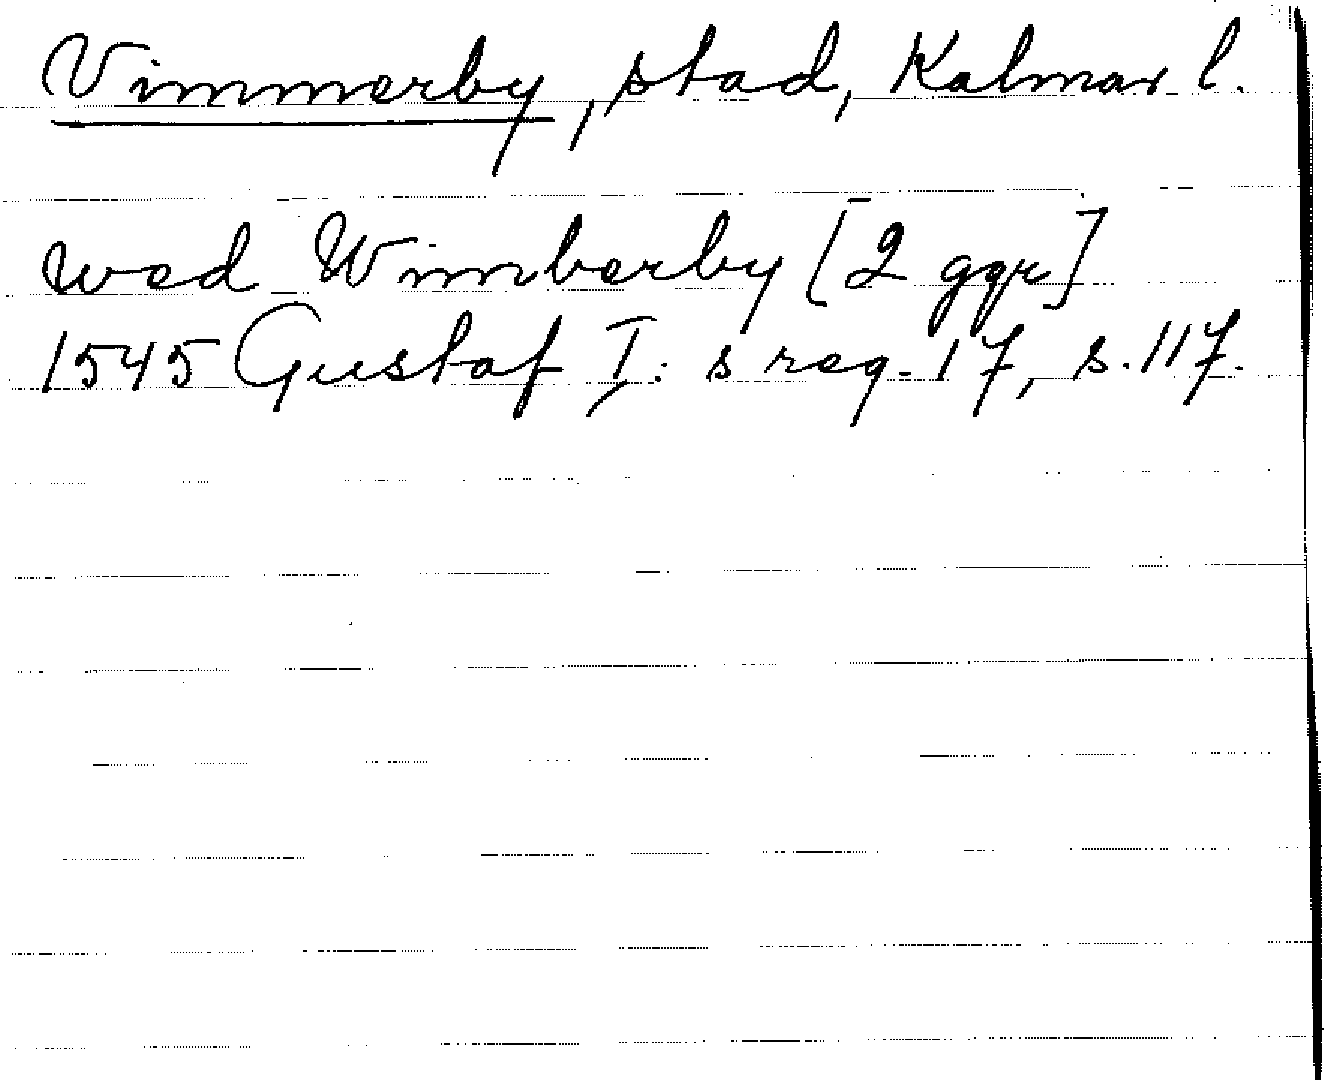 Vimmerby, stad, Kalmar l.
wed Wimberby [2 ggr]
1545 Gustaf I:s reg. 17, s. 117.